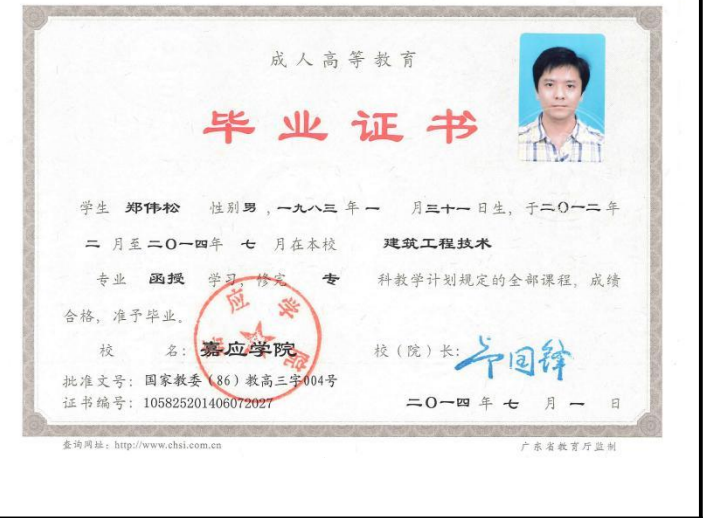 成人高等教育
毕业证书
学生 郑伟松 性别男，一九八三年一 月三十一日生，于二〇一二年
二 月至二〇一四年 七 月在本校 建筑工程技术
专业 函授 学习，修完 专 科教学计划规定的全部课程，成绩
合格，准予毕业。
校 名：嘉应学院 校（院）长：
批准文号：国家教委（86）教高三字004号
证书编号：105825201406072027 二〇一四 年 七 月 一 日
嘉应学院
查询网址：http://www.chsi.com.cn 广东省教育厅监制